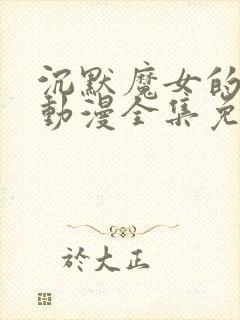 沉默魔女的
動漫全集免
於大正